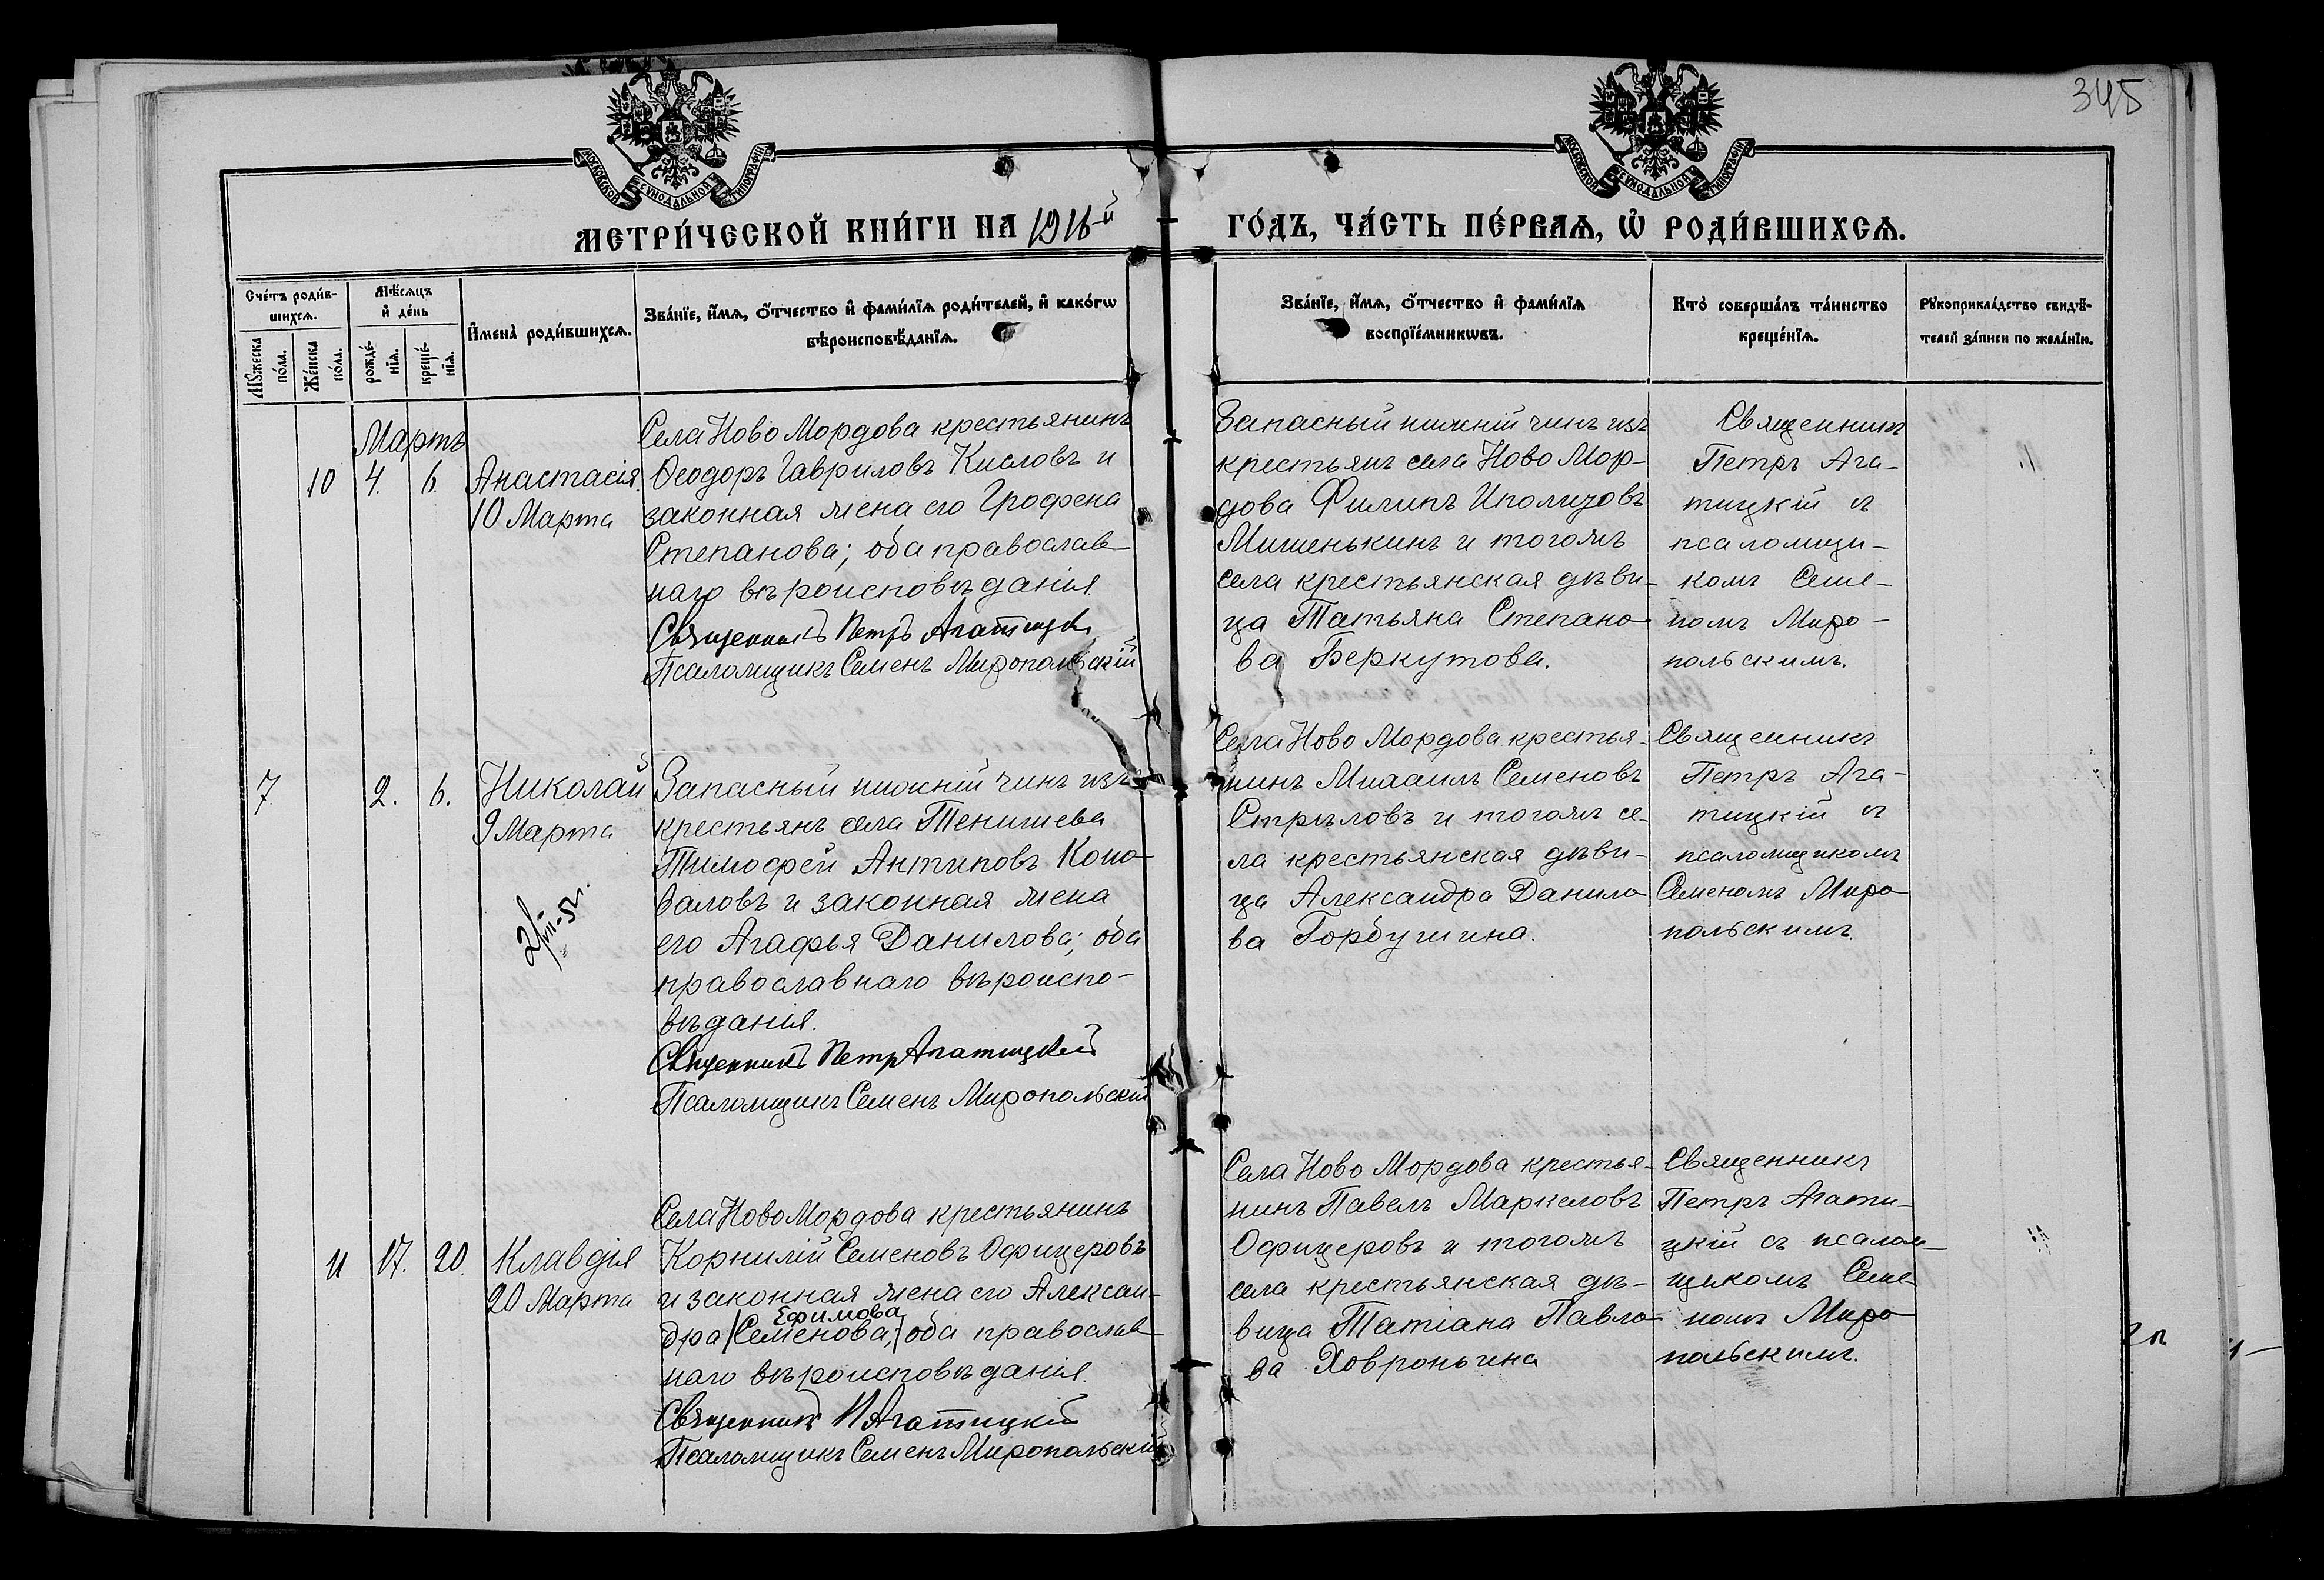 345
МОСКОВСКОЙ СѴНОДАЛЬНОЙ ТИПОГРАФІИ
МОСКОВСКОЙ СѴНОДАЛЬНОЙ ТИПОГРАФІИ
МЕТРИ́ЧЕСКОЙ КНИ́ГИ НА 1916-й ГО́ДЪ, ЧА́СТЬ ПЕ́РВАѦ, Ѡ҆ РОДИ́ВШИХСѦ.
Сче́тъ роди́в-
шихсѧ.
Мꙋ́жеска по́ла.
Же́нска по́ла.
Мѣ́сѧцъ
и҆ де́нь
рожде́-
нїѧ.
креще́-
нїѧ.
И҆мена̀ роди́вшихсѧ.
Зва́нїе, и҆́мѧ, ѻ҆́тчество и҆ фами́лїѧ роди́телей, и҆ како́гѡ
вѣроисповѣ́данїѧ.
Зва́нїе, и҆́мѧ, ѻ҆́тчество и҆ фами́лїѧ
воспрїе́мникѡвъ.
Кто̀ соверша́лъ та́инство
креще́нїѧ.
Рꙋкоприкла́дство свидѣ́-
телей за́писи по жела́нїю.
Мартъ
10 4. 6.
Анастасія.
10 Марта
Села Ново Мордова крестьянинъ
Ѳеодоръ Гавриловъ Кисловъ и
законная жена его Грофена
Степанова; оба православ-
наго вѣроисповѣданія
Священникъ Петръ Агатицкій
Псаломщикъ Семенъ Миропольскій
Запасный нижній чинъ изъ
крестьянъ села Ново Мор-
дова Филипъ Иполитовъ
Мишенькинъ и тогожъ
села крестьянская дѣви-
ца Татьяна Степано-
ва Беркутова.
Священникъ
Петръ Ага-
тицкій съ
псаломщи-
комъ Семе-
номъ Миро-
польскимъ.
7. 2. 6.
Николай
9 Марта
2/VII-52г.
Запасный нижній чинъ изъ
крестьянъ села Тенишева
Тимофей Антиповъ Коно-
валовъ и законная жена
его Агафья Данилова; оба
православнаго вѣроиспо-
вѣданія.
Священникъ Петръ Агатицкій
Псаломщикъ Семенъ Миропольскій
Села Ново Мордова крестья-
нинъ Михаилъ Семеновъ
Стрѣловъ и тогожъ се-
ла крестьянская дѣви-
ца Александра Данило-
ва Горбушина.
Священникъ
Петръ Ага-
тицкій съ
псаломщикомъ
Семеномъ Миро-
польскимъ.
11 17. 20.
Клавдія
20 Марта
Села Ново Мордова крестьянинъ
Корнилій Семеновъ Офицеровъ
и законная жена его Алексан-
Ефимова
дра /Семенова;/ оба православ-
наго вѣроисповѣданія.
Священникъ П Агатицкій
Псаломщикъ Семенъ Миропольскій
Села Ново Мордова крестья-
нинъ Павелъ Маркеловъ
Офицеровъ и тогожъ
села крестьянская дѣ-
вица Татіана Павло-
ва Ховронькина
Священникъ
Петръ Агати-
цкій съ псалом-
щикомъ Семе-
номъ Миро-
польскимъ.